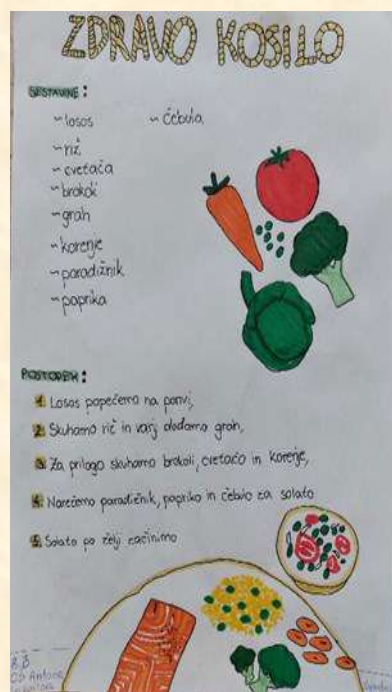 ZDRAVO KOSILO
SESTAVINE:
~losos ~čebula
~riž
~cvetača
~brokoli
~grah
~korenje
~paradižnik
~paprika
POSTOPEK:
1. Losos popečemo na ponvi,
2. Skuhamo riž in vanj dodamo grah,
3. Za prilogo skuhamo brokoli, cvetačo in korenje,
4. Narežemo paradižnik, papriko in čebulo za solato
5. Solato po želji začinimo
8.B
OŠ Antona